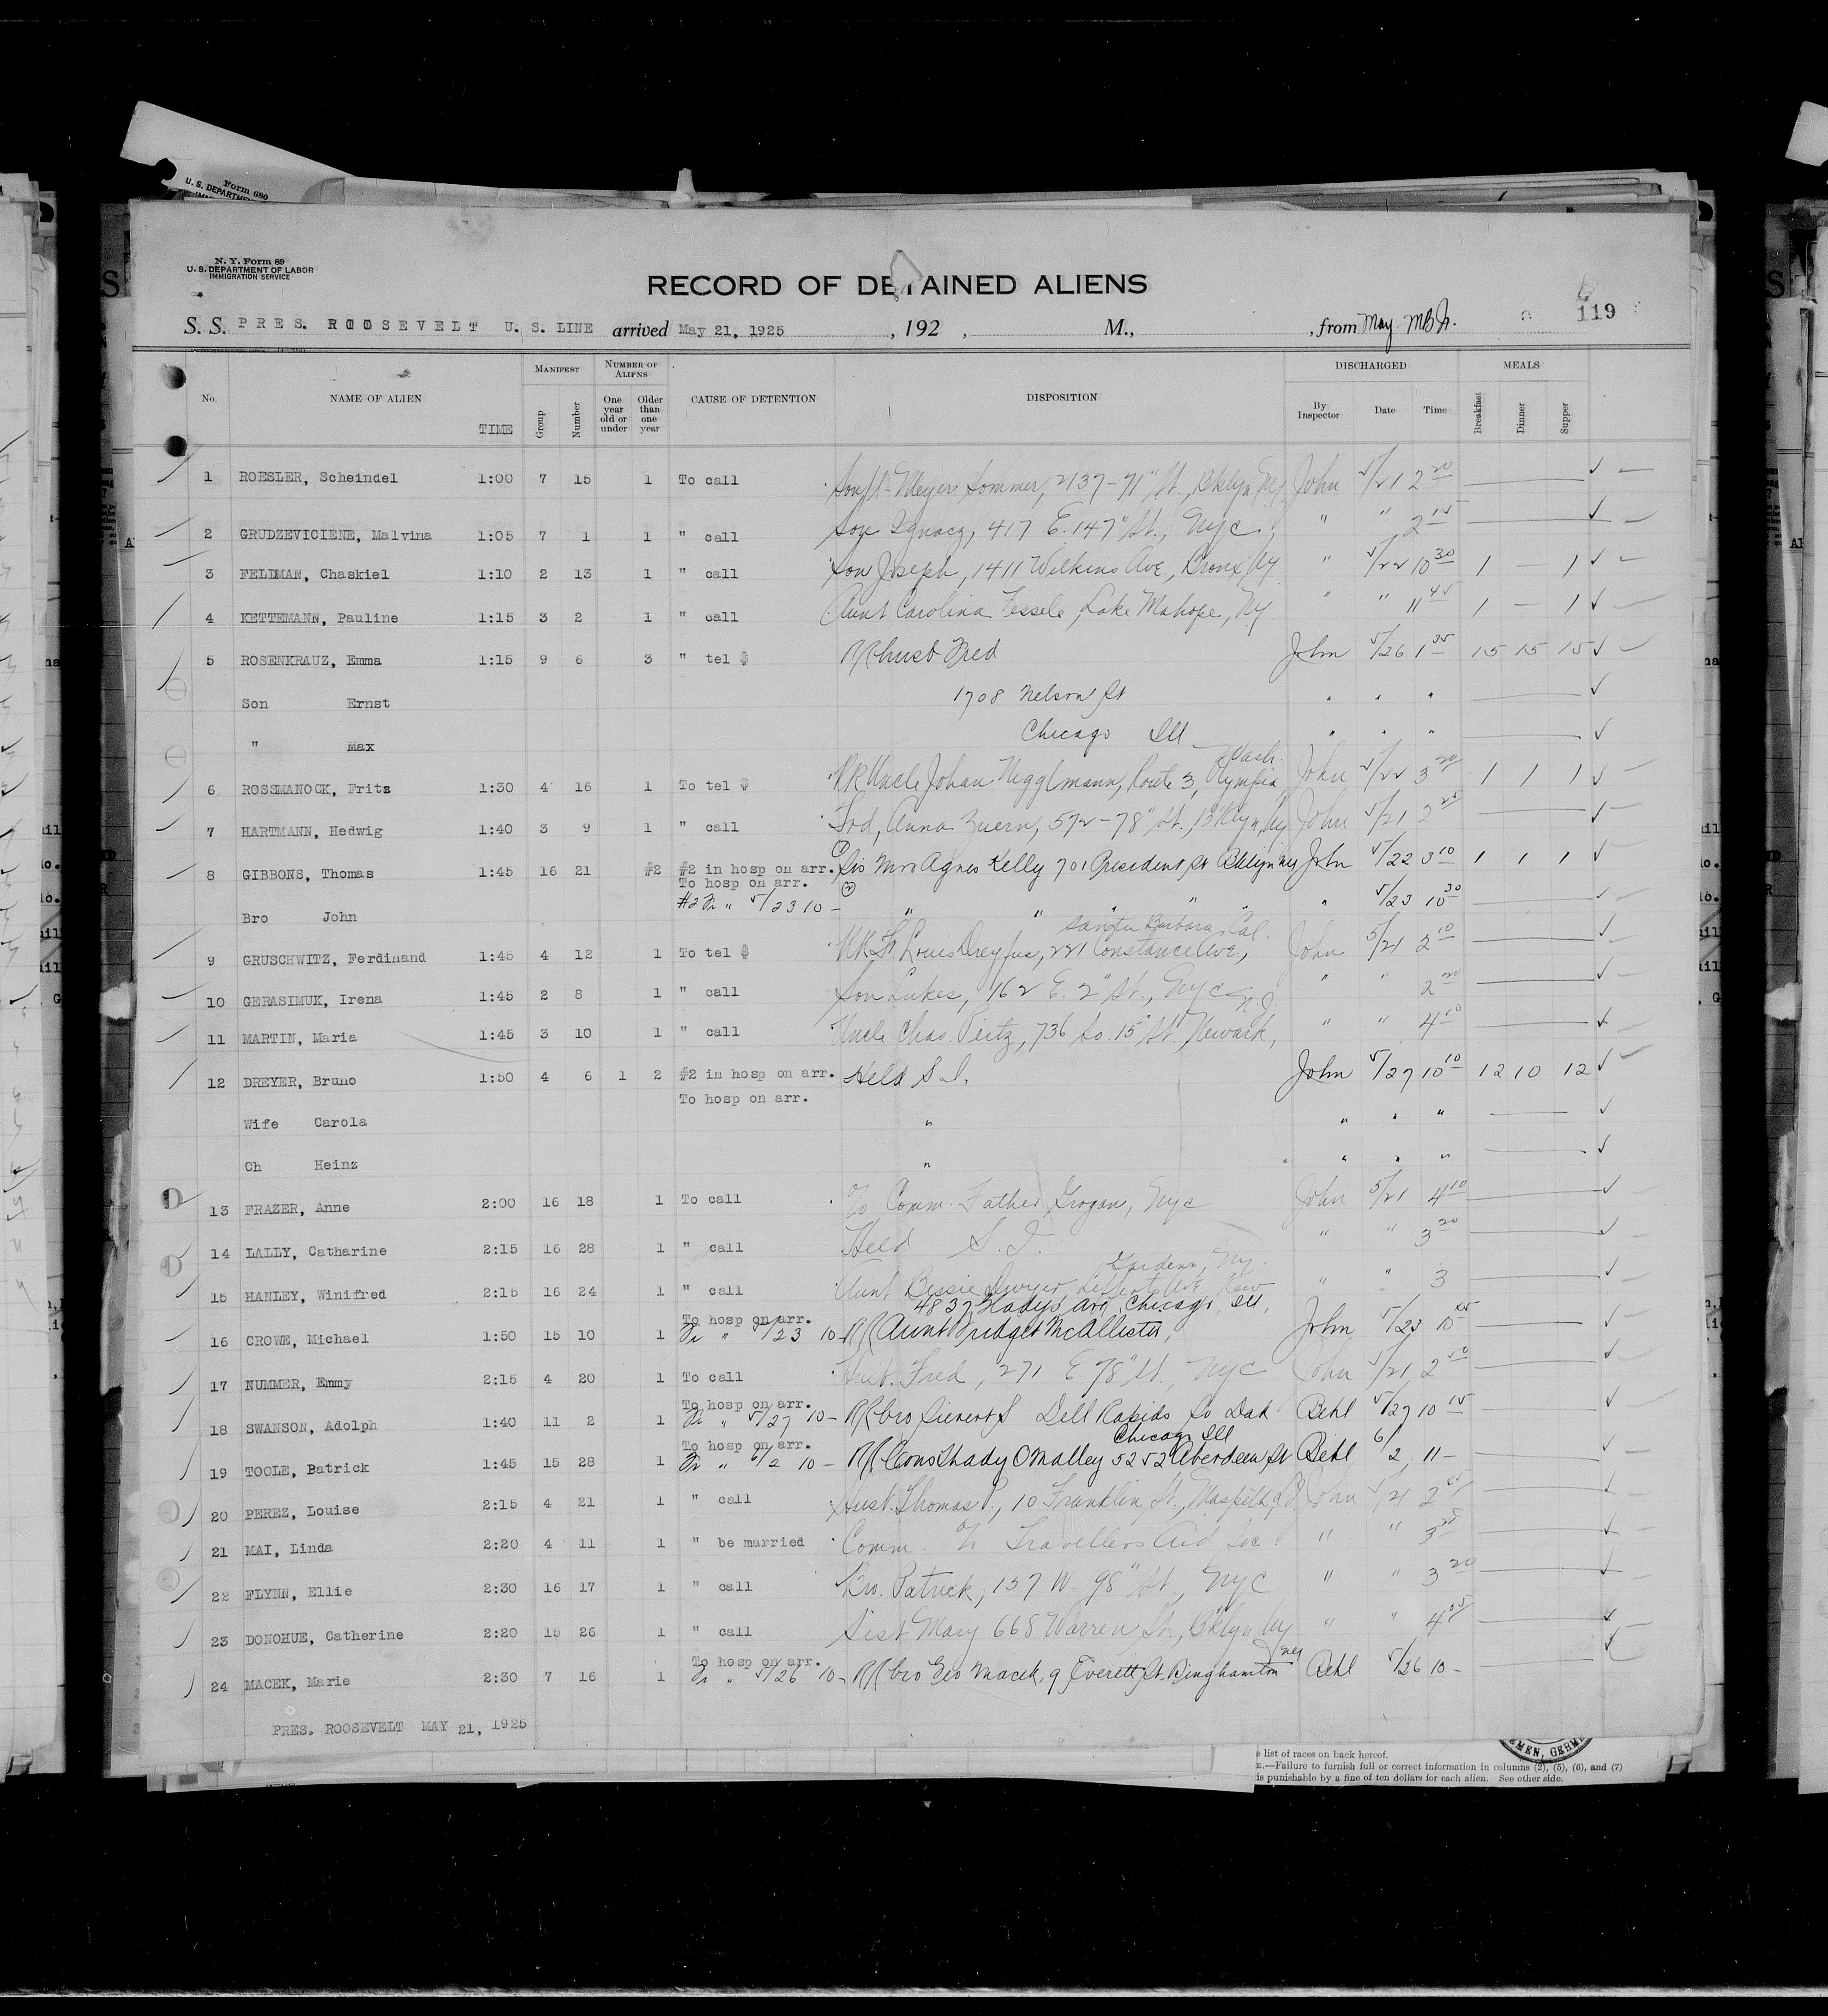 Form 680
U. S. DEPARTMENT
N. Y. Form 89
U. S. DEPARTMENT OF LABOR
IMMIGRATION SERVICE
RECORD OF DETAINED ALIENS
119
S. S. PRES. ROOSEVELT U. S. LINE arrived May 21, 1925, 192 , M., , from May
No. NAME OF ALIEN TIME MANIFEST Group Number NUMBER OF ALIENS One year old or under Older than one year CAUSE OF DETENTION DISPOSITION DISCHARGED By Inspector Date Time MEALS Breakfast Dinner Supper
1 ROESLER, Scheindel 1:00 7 15 1 To call Meyer Sommer, 2137-71" St., Bklyn Ny John 5/21 2 20
2 GRUDZEVICIENE, Malvina 1:05 7 1 1 " call Son Ignacy, 417 E. 147" St., Nyc " " 2 15
3 FELDMAN, Chaskiel 1:10 2 13 1 " call Son Joseph, 1411 Wilkins Ave., Bronx Ny " 5/22 10 30 1 — 1
4 KETTEMANN, Pauline 1:15 3 2 1 " call Aunt Carolina Fessele, Lake Mahope, Ny " " 11 45 1 — 1
5 ROSENKRAUZ, Emma 1:15 9 6 3 " tel $ RR husb Fred John 5/26 1 35 15 15 15
Son Ernst 1708 Nelson St " " "
" Max Chicago Ill " " "
Wash.
6 ROSSMANOCK, Fritz 1:30 4 16 1 To tel $ RR Uncle Johan Route 3, Olympia, John 5/22 3 20 1 1 1
7 HARTMANN, Hedwig 1:40 3 9 1 " call Frd, Anna Zuern, 572-78" St., Bklyn, Ny John 5/21 2 25
8 GIBBONS, Thomas 1:45 16 21 #2 #2 in hosp on arr. Sis Mrs Agnes Kelly 701 President St Bklyn Ny John 5/22 3 10 1 1 1
To hosp on arr.
Bro John #2 Fr " 5/23 10 — " " " " " 5/23 10 30
Santa Barbara, Cal.
9 GRUSCHWITZ, Ferdinand 1:45 4 12 1 To tel $ RR Fr. Louis Dreyfus, 221 Constance Ave., John 5/21 2 10
10 GERASIMUK, Irena 1:45 2 8 1 " call Son Lukes, 162 E. 2" St., Nyc " " 2 20
N.J.
11 MARTIN, Maria 1:45 3 10 1 " call Uncle Chas. Peitz, 736 So. 15" St. Newark, " " 4 10
12 DREYER, Bruno 1:50 4 6 1 2 #2 in hosp on arr. Held S. I. John 5/27 10 10 12 10 12
To hosp on arr.
Wife Carola " " " "
Ch Heinz " " " "
13 FRAZER, Anne 2:00 16 18 1 To call To Comm. Father Grogan, Nyc John 5/21 4 10
14 LALLY, Catharine 2:15 16 28 1 " call Held S. I. " " 3 20
Gardens, Ny.
15 HANLEY, Winifred 2:15 16 24 1 " call Aunt Bessie Dwyer, Lefferts Ave, Kew " " 3
To hosp on arr. 4837 Gladys Ave, Chicago, Ill,
16 CROWE, Michael 1:50 15 10 1 Fr " 5/23 10 RR Aunt Bridget McAllister, John 5/23 10
17 NUMMER, Emmy 2:15 4 20 1 To call Husb. Fred, 271 E. 78" St., Nyc John 5/21 2 50
To hosp on arr.
18 SWANSON, Adolph 1:40 11 2 1 Fr " 5/27 10 — RR bro Sievert S Dell Rapids So Dak Behl 5/27 10 15
To hosp on arr. Chicago Ill
19 TOOLE, Batrick 1:45 15 28 1 Fr " 6/2 10 — RR Cons Thady O Malley 5252 Aberdeen St Behl 6/2 11 —
20 PEREZ, Louise 2:15 4 21 1 " call Husb. Thomas P., 10 Franklin St., Maspeth John 5/21 2
21 MAI, Linda 2:20 4 11 1 " be married Comm. To Travellers Aid Soc. " " 3 25
22 FLYNN, Ellie 2:30 16 17 1 " call Bro. Patrick, 157 W. 98" St., Nyc " " 3 20
23 DONOHUE, Catherine 2:20 15 26 1 " call Sist Mary 668 Warren St., Bklyn, Ny " " 4
To hosp on arr. Ny
24 MACEK, Marie 2:30 7 16 1 Fr " 5/26 10 — RR bro Geo Macek, 9 Everett St. Binghamton Behl 5/26 10 —
PRES. ROOSEVELT MAY 21, 1925
list of races on back hereof.
E.—Failure to furnish full or correct information in columns (2), (5), (6), and (7)
is punishable by a fine of ten dollars for each alien. See other side.